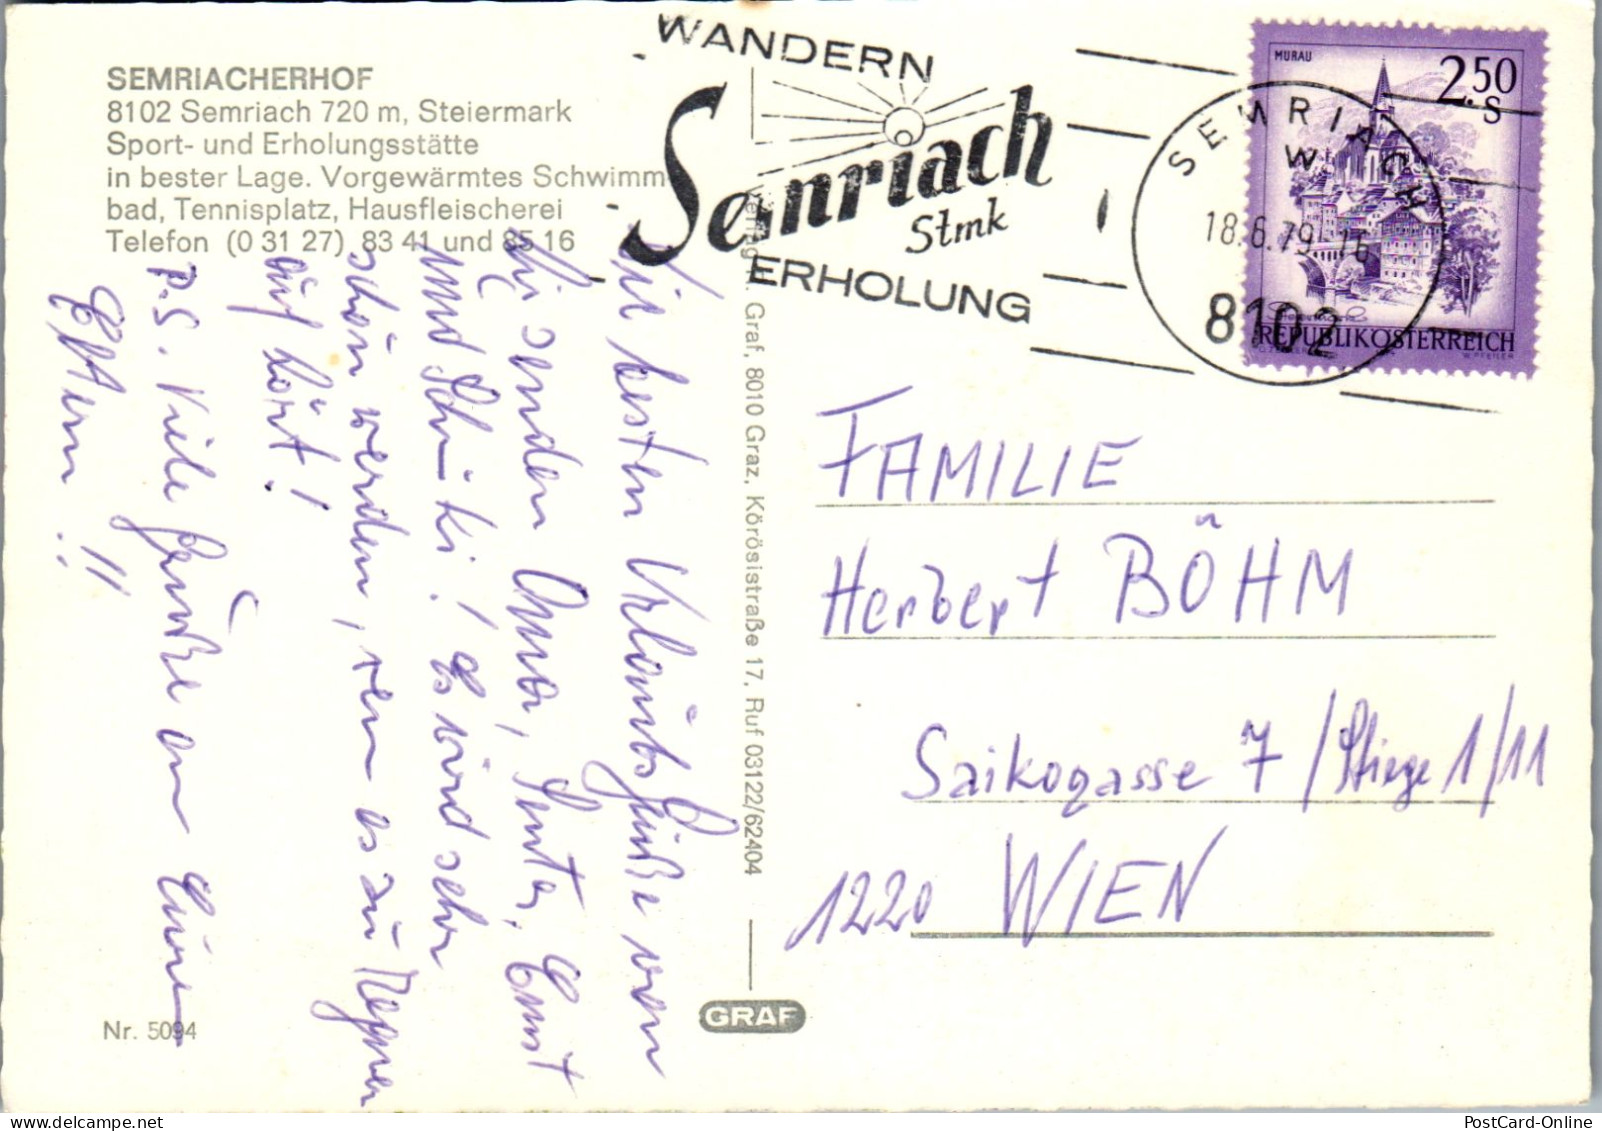 SEMRIACHERHOF
8102 Semriach 720 m, Steiermark
Sport- und Erholungsstätte
in bester Lage. Vorgewärmtes Schwimm
bad, Tennisplatz, Hausfleischerei
Telefon (0 31 27) 83 41 und 85 16
WANDERN
Semriach
Stmk
ERHOLUNG
SEMRIACH
W
18.6.79-16
8102
MURAU
2.50
S
REPUBLIK ÖSTERREICH
Die besten Urlaubsgrüße von
hier senden Oma,
und Schuki! Es wird sehr
schön werden, wenn es zu Regnen
auf hört!
P.S. Viele Grüße an Eure
Eltern!!
Graf, 8010 Graz, Körösistraße 17, Ruf 03122/62404
FAMILIE
Herbert BÖHM
Saikogasse 7/Stiege 1/11
1220 WIEN
Nr. 5094
GRAF
PostCard-Online